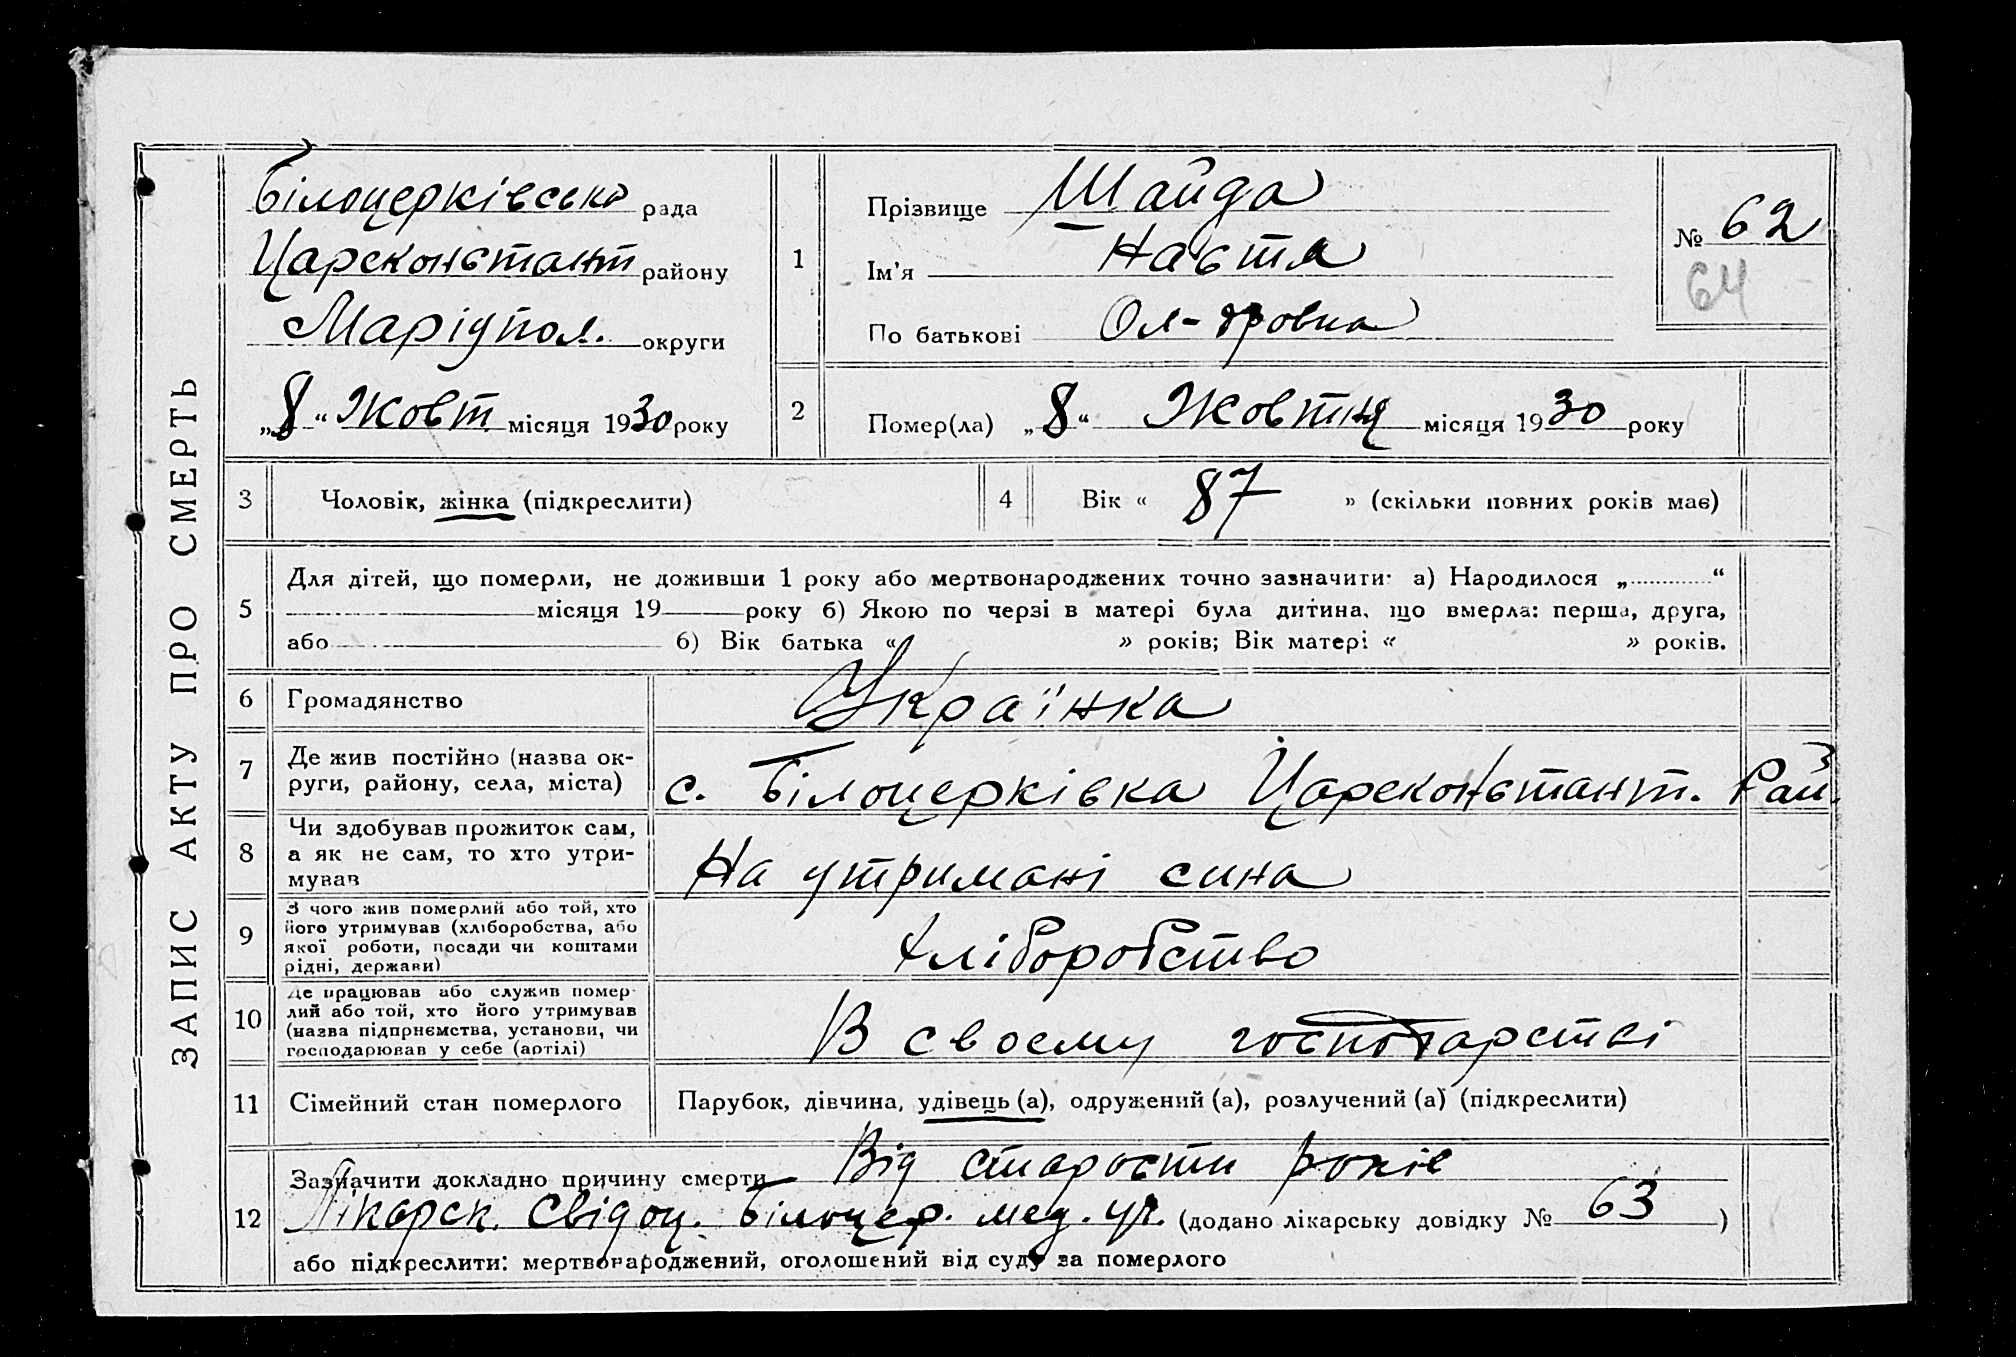 ЗАПИС АКТУ ПРО СМЕРТЬ
Білоцерківська рада
Царсконстант району
Маріупол. округи
„8“ Жовт місяця 1930 року
1
Прізвище Шайда
Ім'я Настя
По батькові Ол-дровна
№ 62
64
2
Помер(ла) „8“ Жовтня місяця 1930 року
3 Чоловік, жінка (підкреслити)
4 Вік « 87 » (скільки повних років має)
5
Для дітей, що померли, не доживши 1 року або мертвонароджених точно зазначити: а) Народилося „ “
місяця 19 року б) Якою по черзі в матері була дитина, що вмерла: перша, друга,
або б) Вік батька « » років; Вік матері « » років.
6 Громадянство Українка
7
Де жив постійно (назва ок-
руги, району, села, міста)
с. Білоцерківка Царсконстант. Рай.
8
Чи здобував прожиток сам,
а як не сам, то хто утри-
мував
На утримані сина
9
З чого жив померлий або той, хто
його утримував (хліборобства, або
якої роботи, посади чи коштами
рідні, держави)
Хліборобство
10
Де працював або служив помер-
лий або той, хто його утримував
(назва підприємства, установи, чи
господарював у себе (артілі)
В своему господарстві
11 Сімейний стан померлого
Парубок, дівчина, удівець (а), одружений (а), розлучений (а) (підкреслити)
12
Зазначити докладно причину смерти Від старости років
Лікарск. свідоц. Білоцер. мед. уч. (додано лікарську довідку № 63)
або підкреслити: мертвонароджений, оголошений від суду за померлого